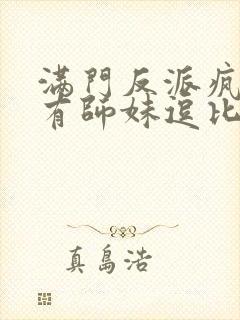 滿門反派瘋
有師妹逗比
真島浩